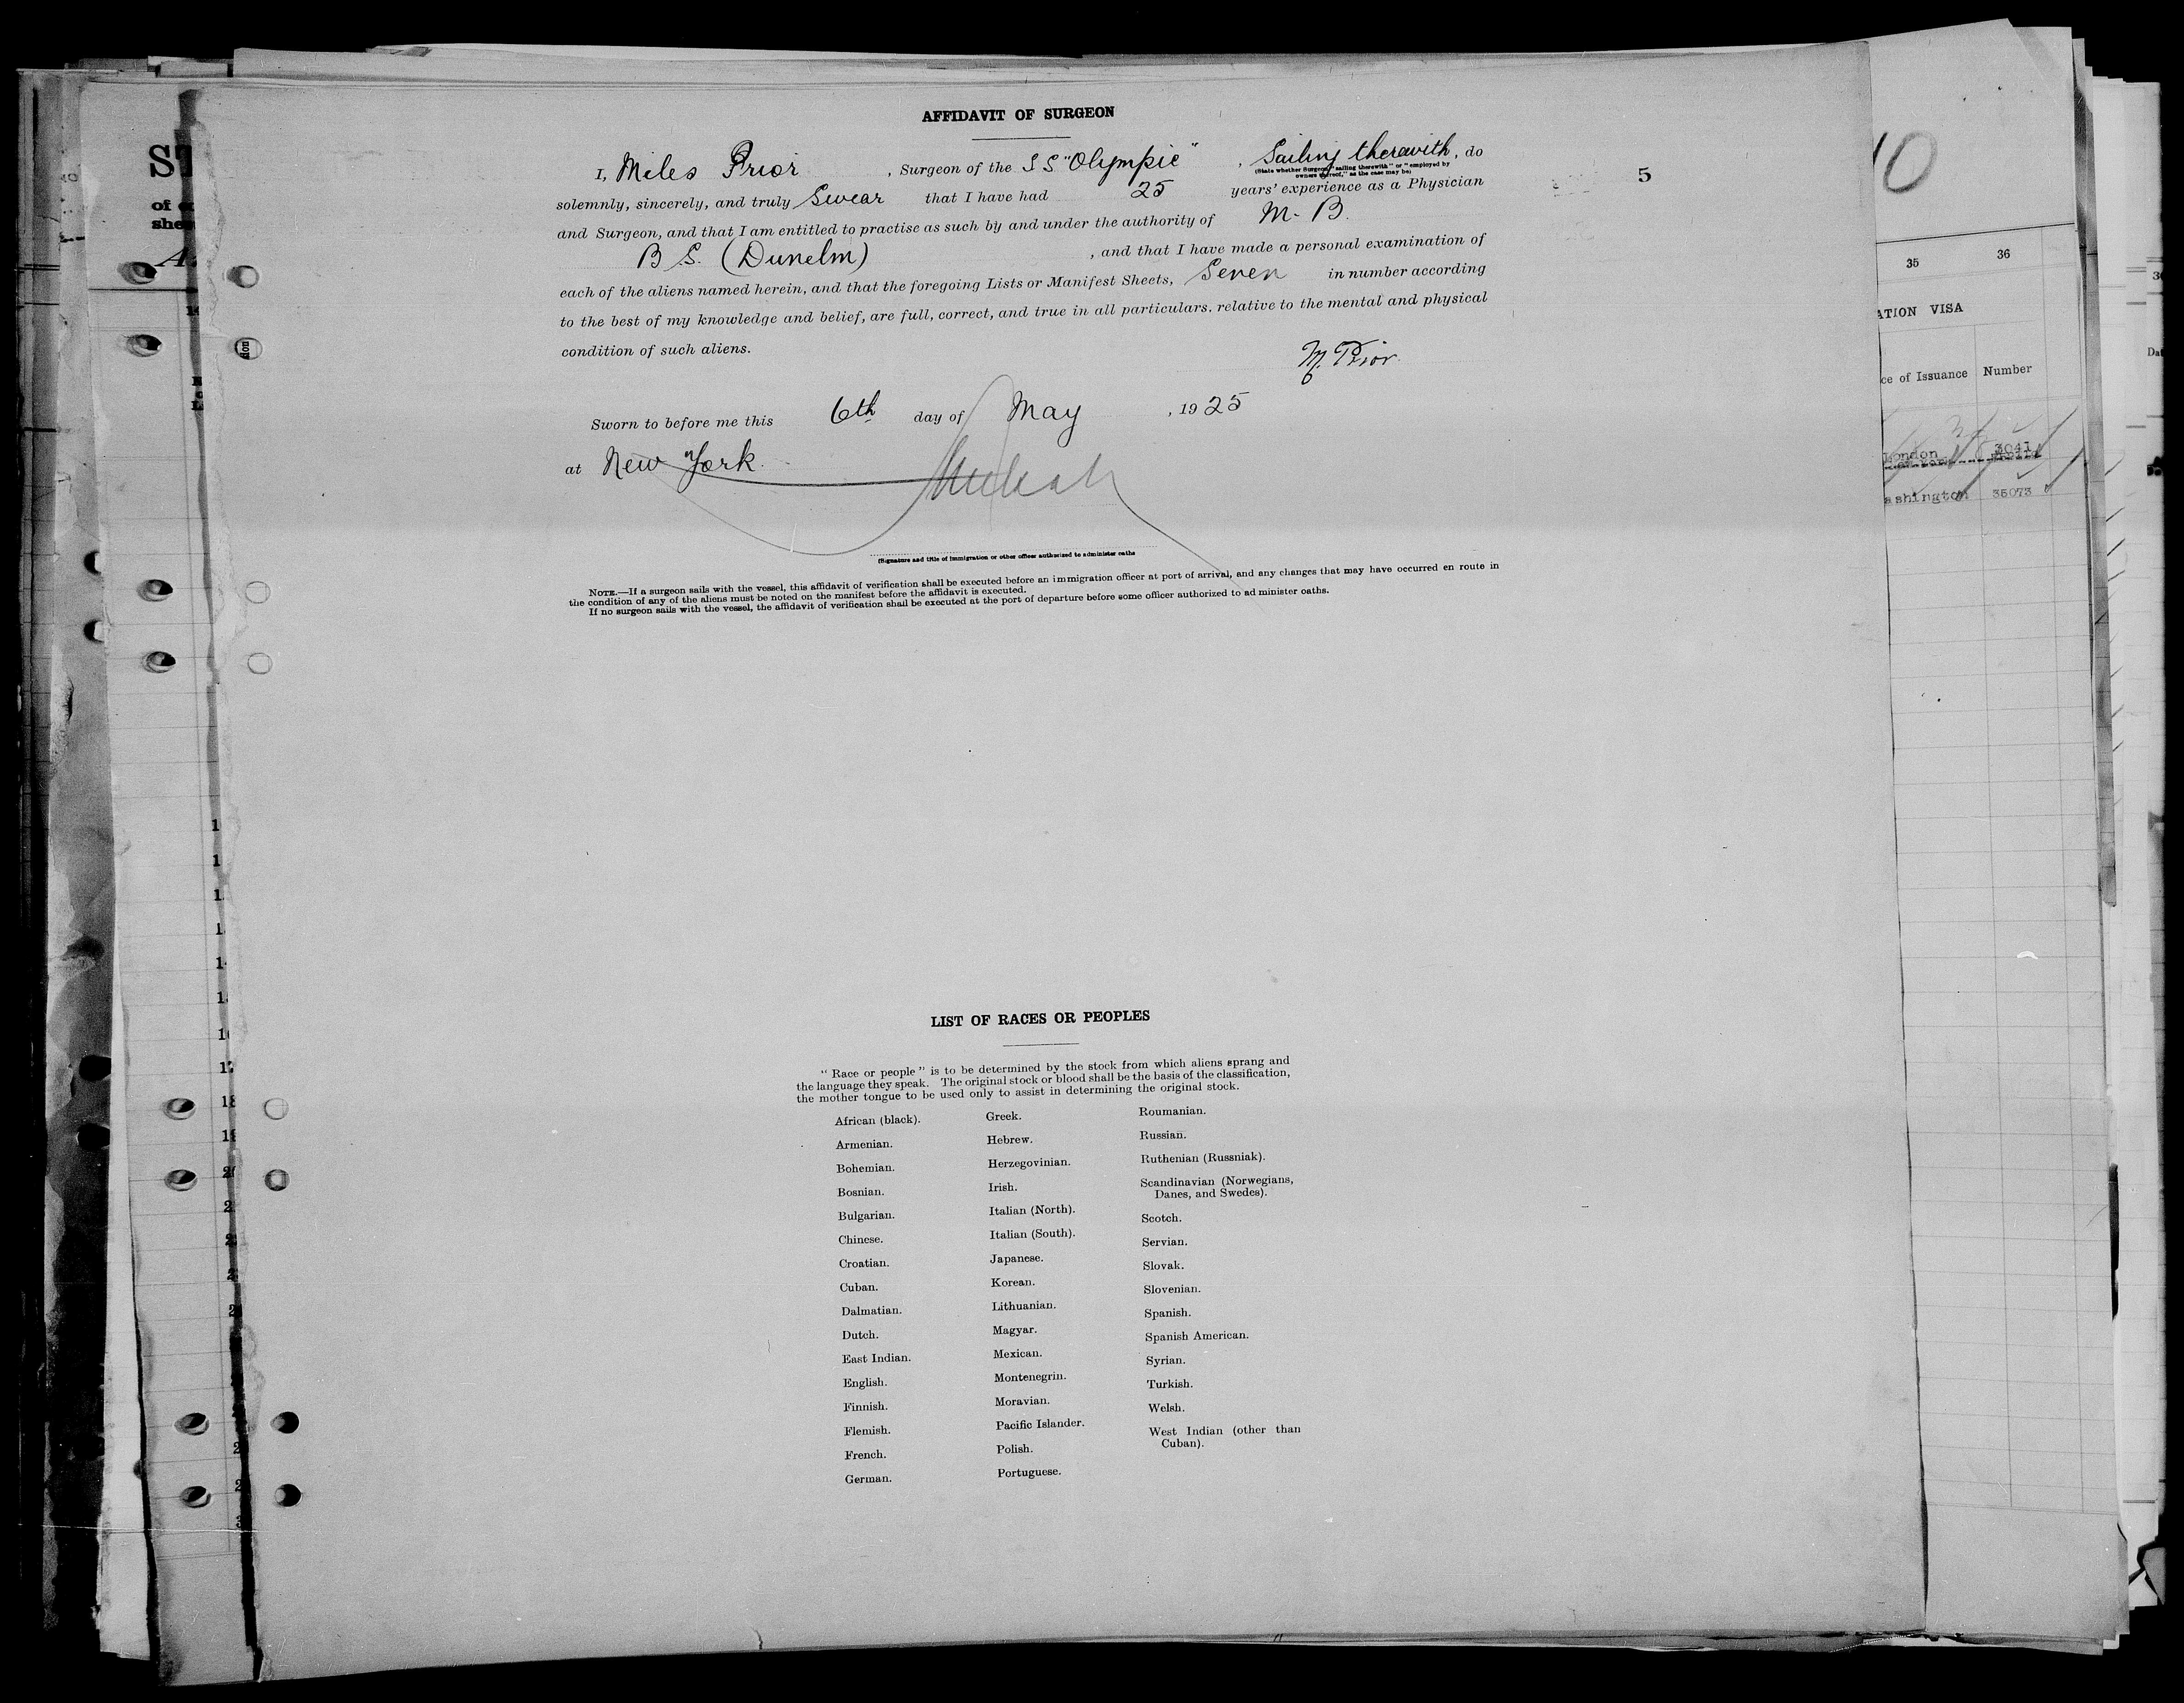 AFFIDAVIT OF SURGEON
I, Miles Prior, Surgeon of the S S "Olympic", Sailing therewith, do
(State whether Surgeon "sailing therewith" or "employed by
owners thereof," as the case may be)
5
solemnly, sincerely, and truly Swear that I have had 25 years' experience as a Physician
and Surgeon, and that I am entitled to practise as such by and under the authority of M. B.
B S. (Dunelm), and that I have made a personal examination of
each of the aliens named herein, and that the foregoing Lists or Manifest Sheets, Seven in number according
to the best of my knowledge and belief, are full, correct, and true in all particulars, relative to the mental and physical
condition of such aliens.
M. Prior.
Sworn to before me this 6th day of May, 1925
at New York.
(Signature and title of immigration or other officer authorized to administer oaths
NOTE.—If a surgeon sails with the vessel, this affidavit of verification shall be executed before an immigration officer at port of arrival, and any changes that may have occurred en route in
the condition of any of the aliens must be noted on the manifest before the affidavit is executed.
If no surgeon sails with the vessel, the affidavit of verification shall be executed at the port of departure before some officer authorized to administer oaths.
LIST OF RACES OR PEOPLES
" Race or people " is to be determined by the stock from which aliens sprang and
the language they speak. The original stock or blood shall be the basis of the classification,
the mother tongue to be used only to assist in determining the original stock.
African (black).
Armenian.
Bohemian.
Bosnian.
Bulgarian.
Chinese.
Croatian.
Cuban.
Dalmatian.
Dutch.
East Indian.
English.
Finnish.
Flemish.
French.
German.
Greek.
Hebrew.
Herzegovinian.
Irish.
Italian (North).
Italian (South).
Japanese.
Korean.
Lithuanian.
Magyar.
Mexican.
Montenegrin.
Moravian.
Pacific Islander.
Polish.
Portuguese.
Roumanian.
Russian.
Ruthenian (Russniak).
Scandinavian (Norwegians,
Danes, and Swedes).
Scotch.
Servian.
Slovak.
Slovenian.
Spanish.
Spanish American.
Syrian.
Turkish.
Welsh.
West Indian (other than
Cuban).
10
35 36
ATION VISA
ce of Issuance Number
London 3041
ashington 35073